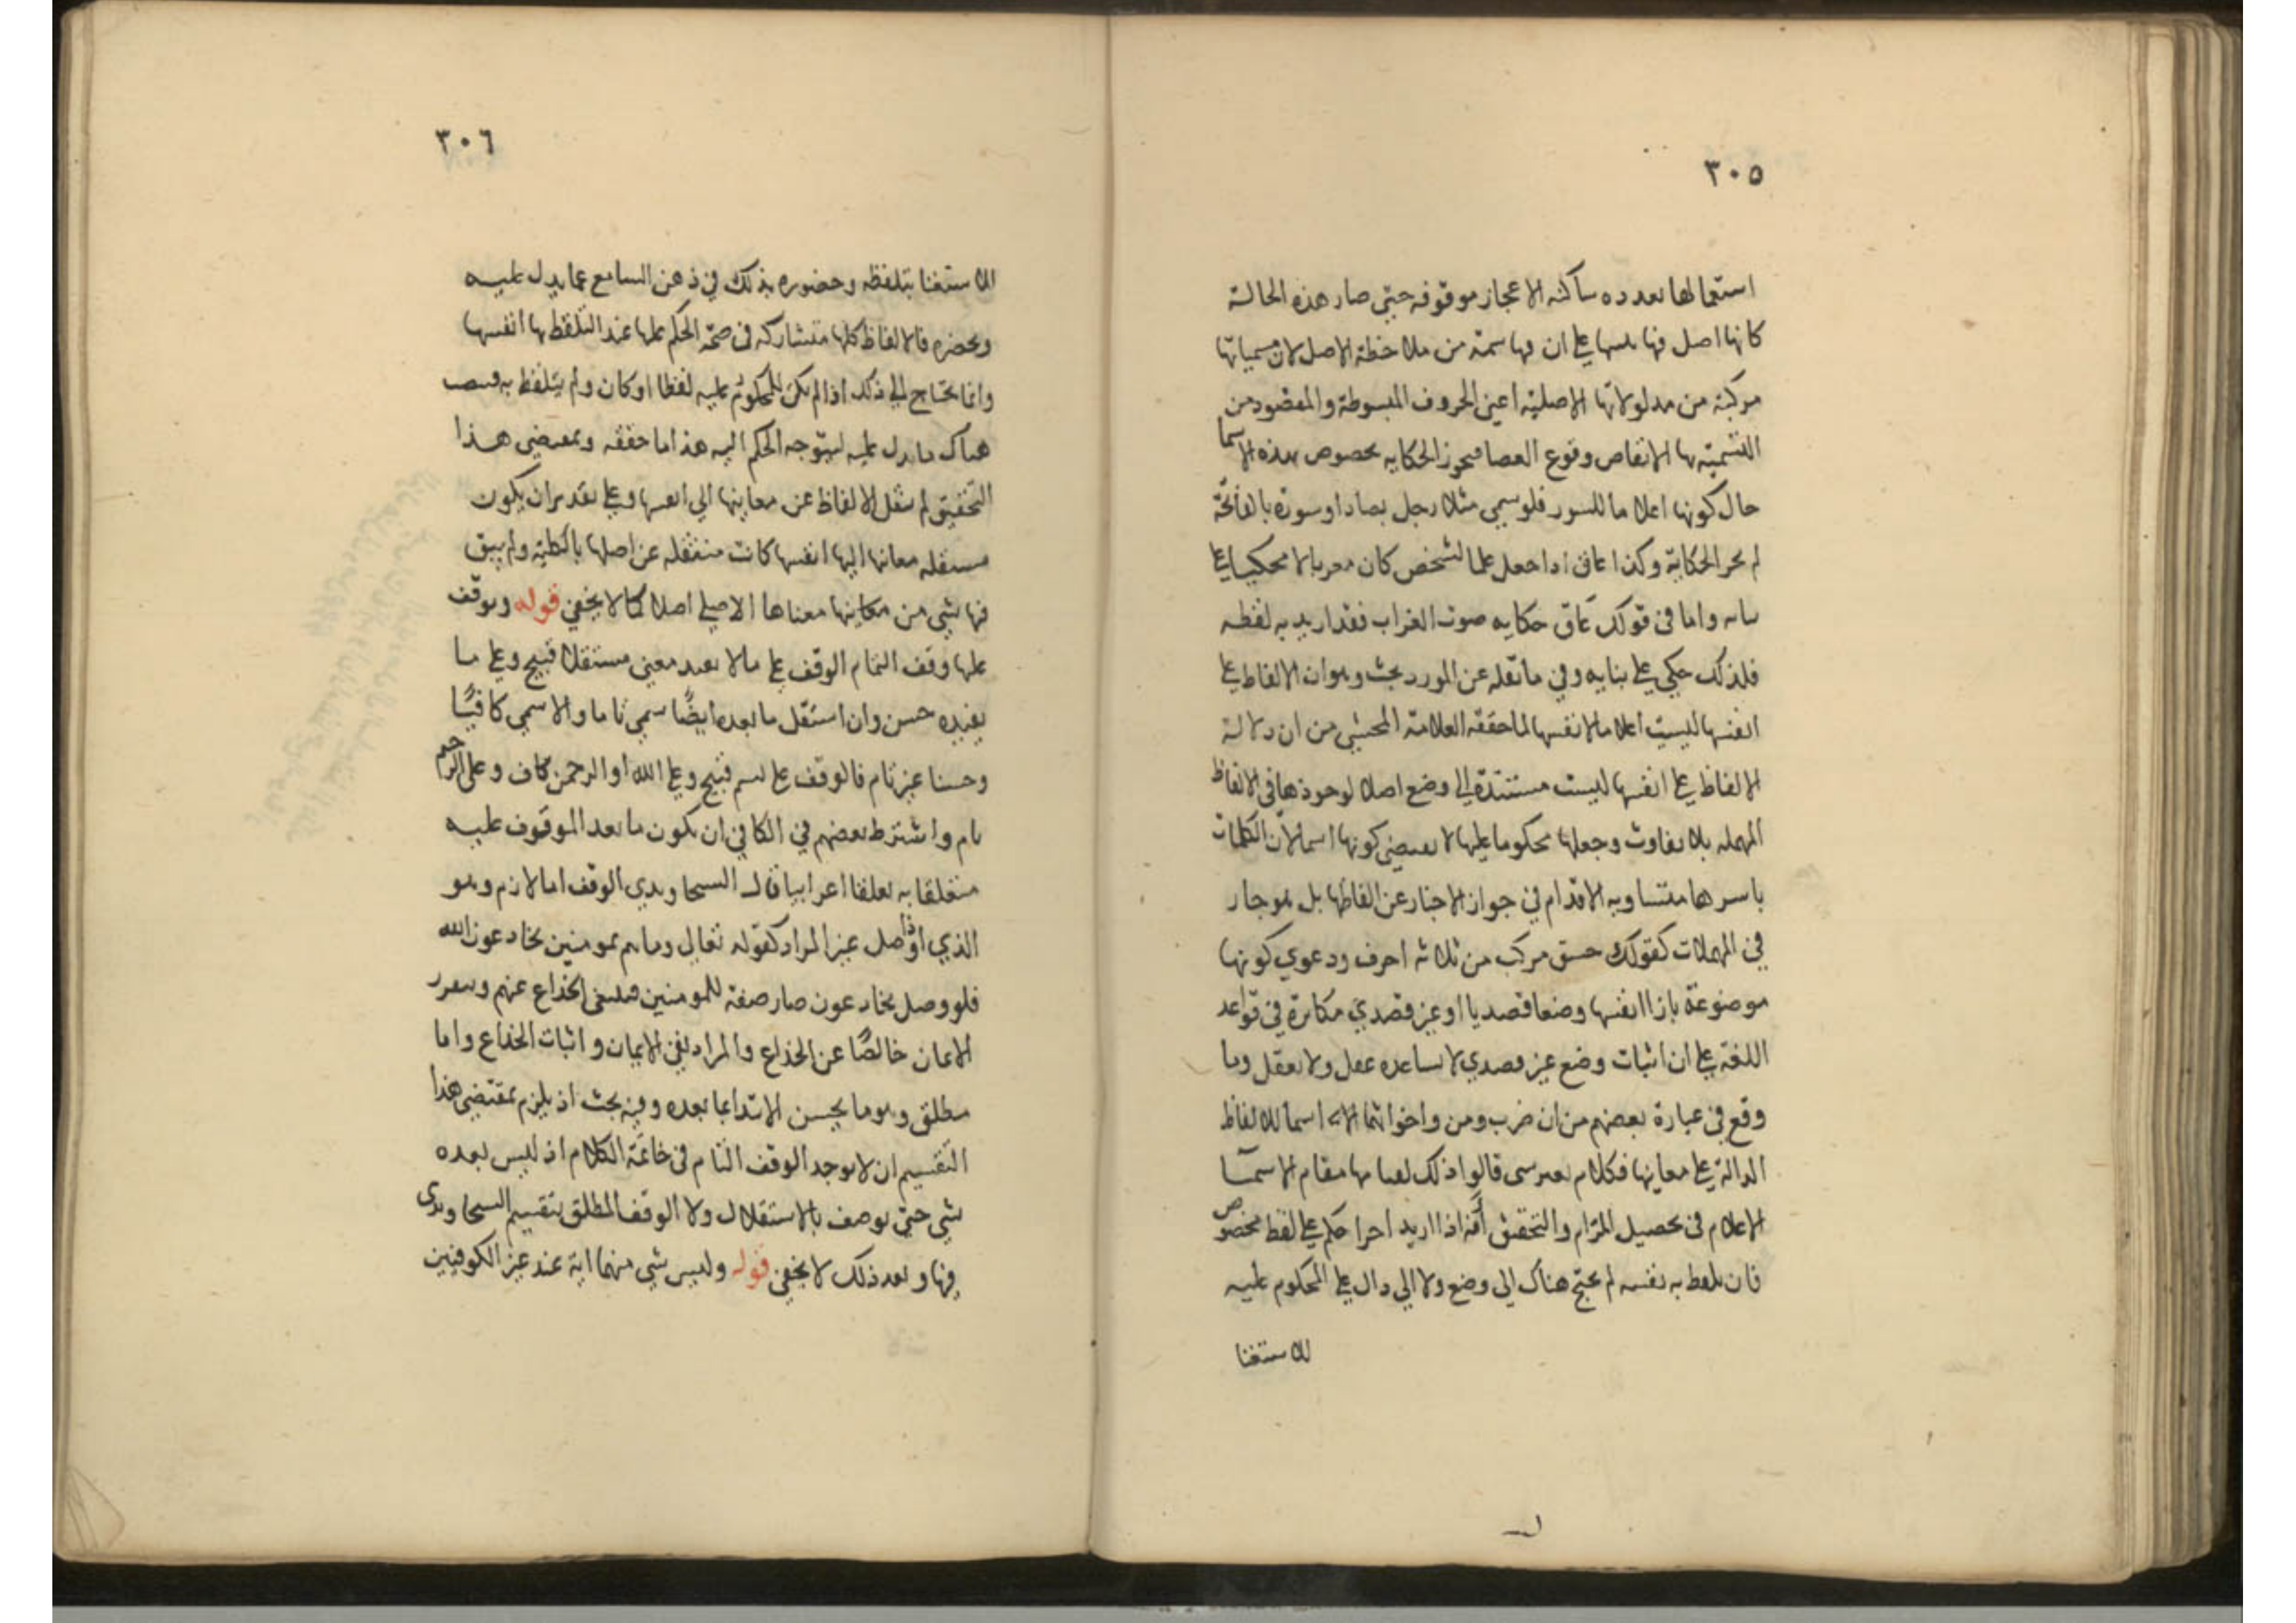 ٣٠٥
استعمالها معدده ساكنه الاعجاز موقوفه حتي صار هذه الحالة
كانها اصل فيها على ان فيها سمة من ملاحظة الاصل لان مسمياتها
مركبة من مدلولاتها الاصلية اعني الحروف المبسوطة والمقصود من
التسمية بها الايقاض وقوع العصا فيجوز الحكاية بخصوص بهذه الاسما
حال كونها اعلاما للسور فلو سمي مثلا رجل بصاد او سورة بالفاتحة
لم يجز الحكاية وكذا غاق اذا جعل علما لشخص كان معربا لا محكيا على
بنائه واما في قولك غاق حكايه صوت الغراب فقد اريد به لفظه
فلذلك حكي على بنايه وفي ما نقله عن المورد بحث وهو ان الالفاظ على
انفسها ليست اعلاما لانفسها لما حققه العلامة المحشي من ان دلالة
الالفاظ على انفسها ليست مستندة الى وضع اصلا لوجودها في الالفاظ
المهمله بلا تفاوت وجعلها محكوما عليها لا يقتضي كونها اسما لان الكلمات
باسرها متساويه الاقدام في جواز الاخبار عن الفاظها بل هو جار
في المهملات كقولك جسق مركب من ثلاثه احرف ودعوي كونها
موضوعة بازا انفسها وضعا قصديا او غير قصدي مكابرة في قواعد
اللغة على ان اثبات وضع غير قصدي لا يساعده عقل ولا نقل وما
وقع في عبارة بعضهم من ان ضرب ومن واخواتهما اسما للالفاظ
الدالة على معانيها فكلام قالوا ذلك لقيامها مقام الاسما
الاعلام في تحصيل المرام والتحقيق أنه اذا اريد اجرا حكم على لفظ مخصوص
فان تلفظ به نفسه لم يحتج هناك الى وضع ولا الى دال على المحكوم عليه
للاستغنا
٣٠٦
الاستغنا بتلفظه وحضوره بذلك في ذهن السامع عما يدل عليه
ويحضره فالالفاظ كلها متشاركه في صحة الحكم عليها عند التلفظ بها انفسها
وانما يحتاج الى ذلك اذا لم يكن المحكوم عليه لفظا او كان ولم يتلفظ به فينصب
هناك ما يدل عليه ليتوجه الحكم اليه هذا ما حققه وبمقتضى هذا
التحقيق لم تنقل الالفاظ عن معانيها الى انفسها وعلى تقدير ان يكون
مستقله معانيها اليها انفسها كانت منتقله عن اصلها بالكلية ولم يبق
فيها شي من معناها الاصلي اصلا كما لا يخفى قوله ويوقف
عليها وقف التمام الوقف على ما لا يفيد معنى مستقلا قبيح وعلى ما
يفيده حسن وان استقل ما بعده ايضًا سمي تاما والا سمي كافيًا
وحسنا غير تام فالوقف على بسم قبيح وعلى الله او الرحمن كاف وعلى الرحيم
تام واشترط بعضهم في الكافي ان يكون ما بعد الموقوف عليه
متعلقا به تعلقا اعرابيا قال السجاوندي الوقف اما لازم وهو
الذي اوصل غير المراد كقوله تعالى وما هم بمومنين يخادعون الله
فلو وصل يخادعون صار صفة للمومنين فينتفي الخداع عنهم ويتقرر
الايمان خالصًا عن الخداع والمراد نفي الايمان واثبات الخداع واما
مطلق وهو ما يحسن الابتدا بما بعده وفيه بحث اذ يلزم بمقتضى هذا
التقسيم ان لا يوجد الوقف التام في خاتمة الكلام اذ ليس بعده
شي حتى يوصف بالاستقلال ولا الوقف المطلق بتقسيم السجاوندى
فيها وبعد ذلك لا يخفى قوله وليس شي منهما اية عند غير الكوفيين